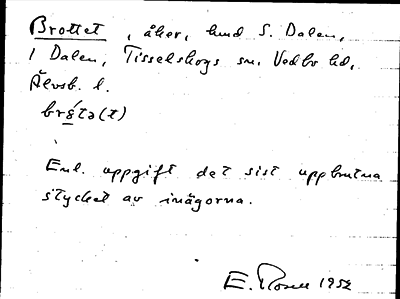 Brottet, åker, hmd S. Dalen,
1 Dalen, Tisselskogs sn. Vedbo hd,
Älvsb. l.
brǿtə(t)
Enl. uppgift det sist uppbrutna
stycket av inägorna.
E. Rosell 1952